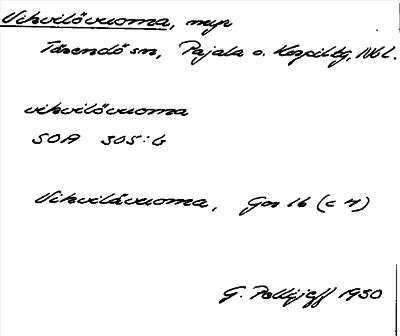 Vihvilövuoma, myr
Tärendö sn, Pajala o. Korpil. tg, Nbl.
vihvilövuoma
SOA 305:6
Vihvilövuoma, Gor 16 (c 4)
G. Pellijeff 1950